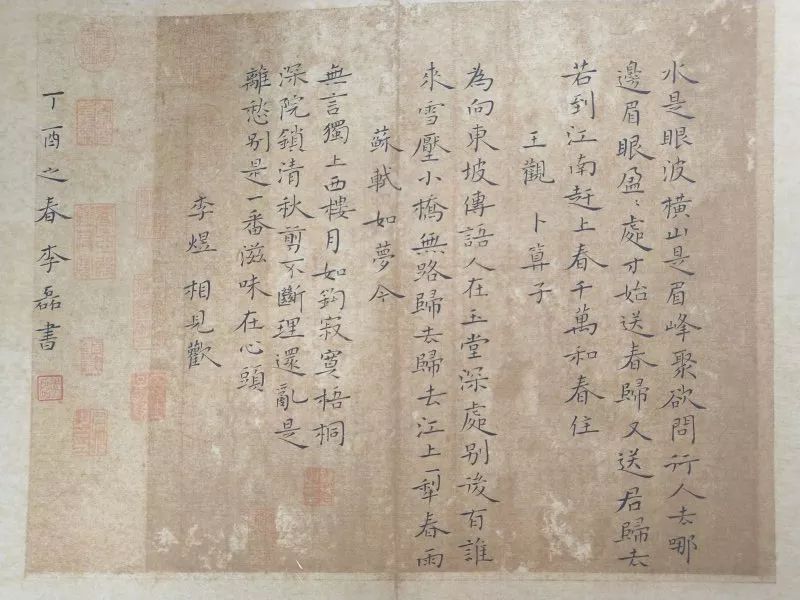 水是眼波橫山是眉峰聚欲問行人去哪
邊眉眼盈盈處才始送春歸又送君歸去
若到江南赶上春千萬和春住
王觀 卜算子
為向東坡傳語人在玉堂深處別後有誰
來雪壓小橋無路歸去歸去江上一犁春雨
蘇軾如夢令
無言獨上西樓月如鉤寂寞梧桐
深院鎖清秋剪不斷理還亂是
離愁別是一番滋味在心頭
李煜 相見歡
丁酉之春李磊書